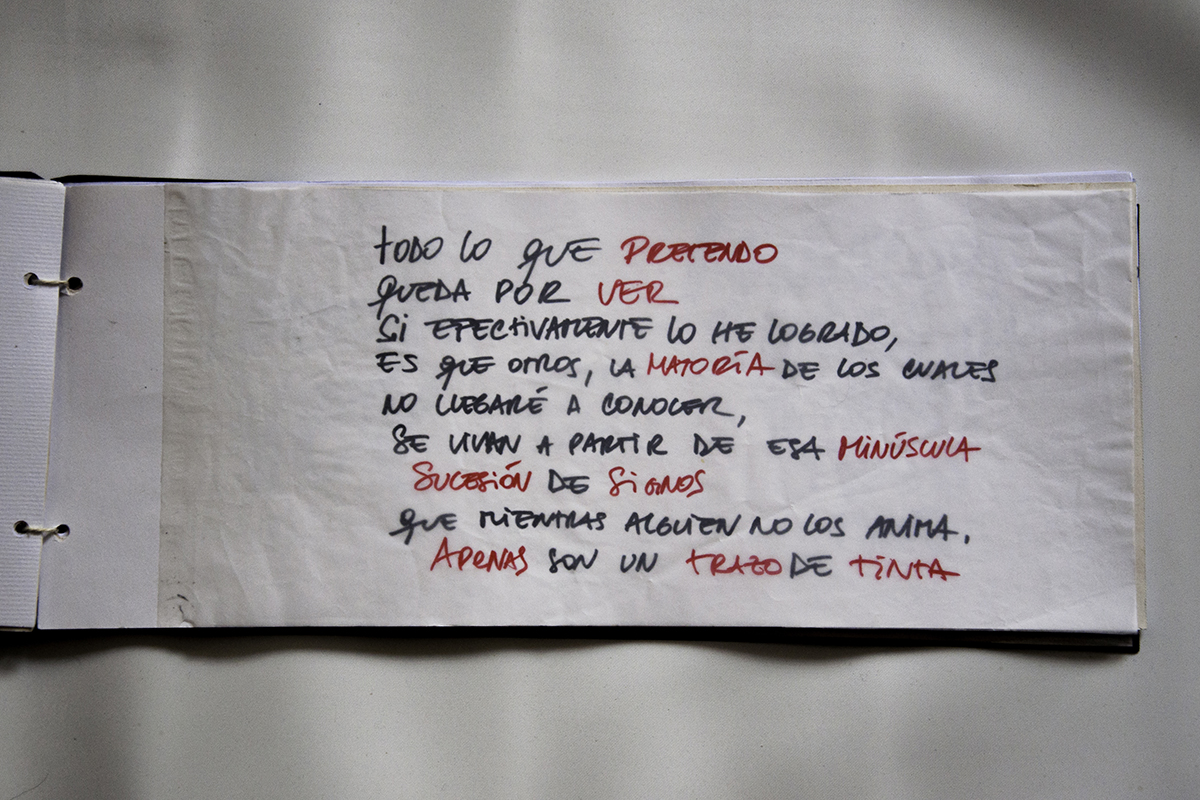 TODO LO QUE PRETENDO
QUEDA POR VER
Si EFECTIVAMENTE LO HE LOGRADO,
ES QUE OTROS, LA MAYORÍA DE LOS CUALES
NO LLEGARÉ A CONOCER,
SE VIVAN A PARTIR DE ESA MINÚSCULA
SUCESIÓN DE SiGNOS
QUE MIENTRAS ALGUIEN NO LOS ANIMA.
APENAS SON UN TRAZO DE TiNTA